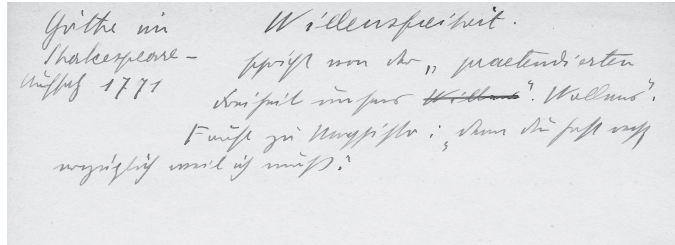 Göthe im
Shakespeare-
Aufsatz 1771
Willensfreiheit.
spricht von der „praetendierten
Freiheit unsers Willens". Wollens".
Faust zu Mephisto: „denn du hast recht
vorzüglich weil ich muß."